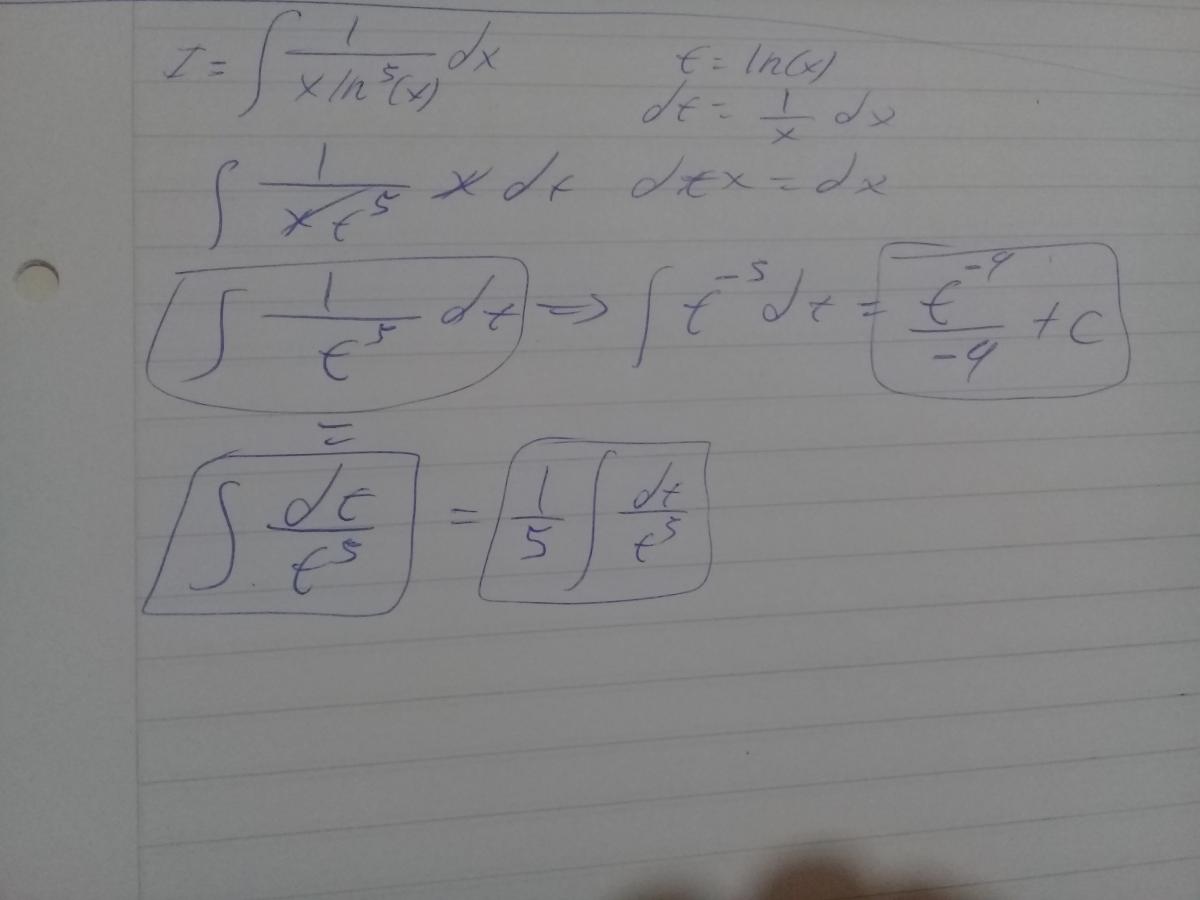 I = ∫ 1/(x ln^5(x)) dx t = ln(x)
dt = 1/x dx
∫ 1/(x t^5) x dt dt x = dx
∫ 1/t^5 dt => ∫ t^-5 dt = t^-4/-4 + C
=
∫ dt/t^5 = 1/5 ∫ dt/t^5